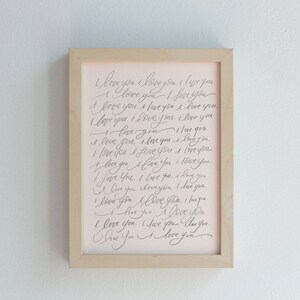 i love you i love you i love you
i love you i love you
i love you i love you i love you
i love you i love you i love you
i love you i love you
i love you i love you i love you
i love you i love you i love you
i love you i love you i love you
i love you i love you i love you
i love you i love you i love you
i love you i love you i love you
i love you i love you
i love you i love you i love you
i love you i love you